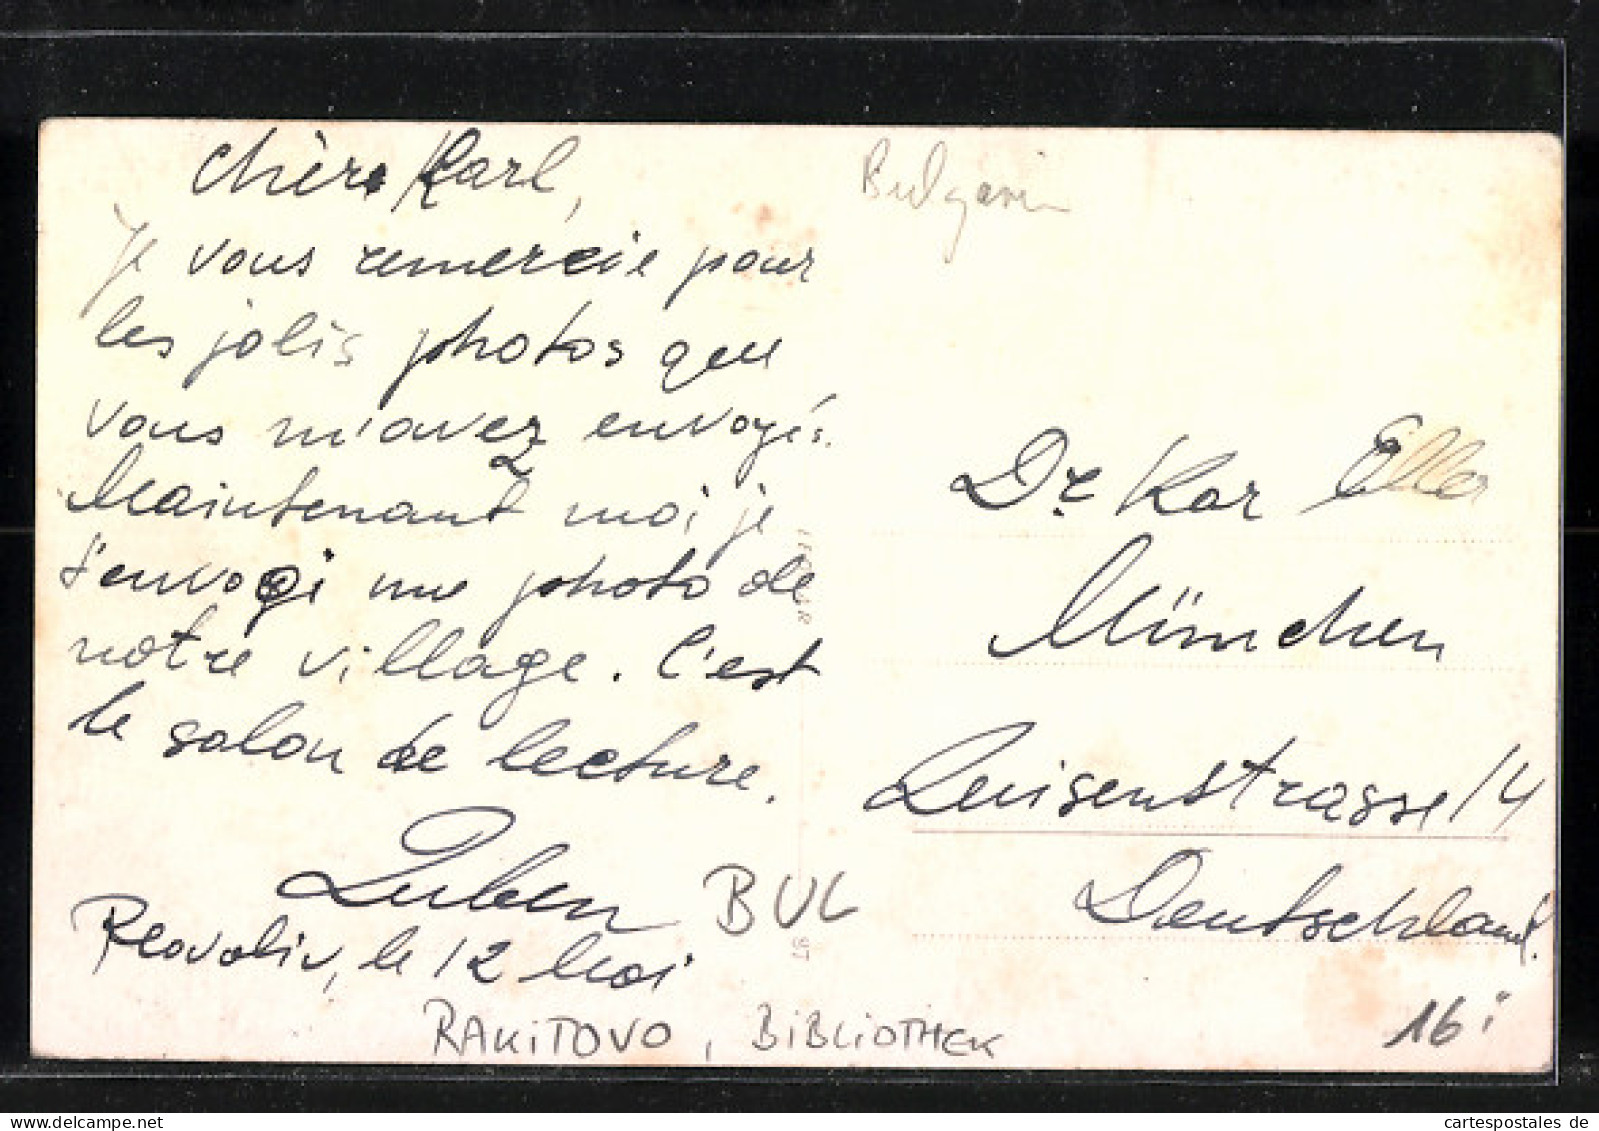 Chère Karl,
Je vous remercie pour
les jolis photos que
vous m'avez envoyés.
Maintenant moi je
t'envoqi une photo de
notre village. C'est
le salon de lecture.
Luben
le 12 Mai
Bulgarien
Dr. Kar Eller
München
Luisenstrasse 14
Deutschland.
BUL
RAKITOVO, BIBLIOTHEK
16
cartespostales.de